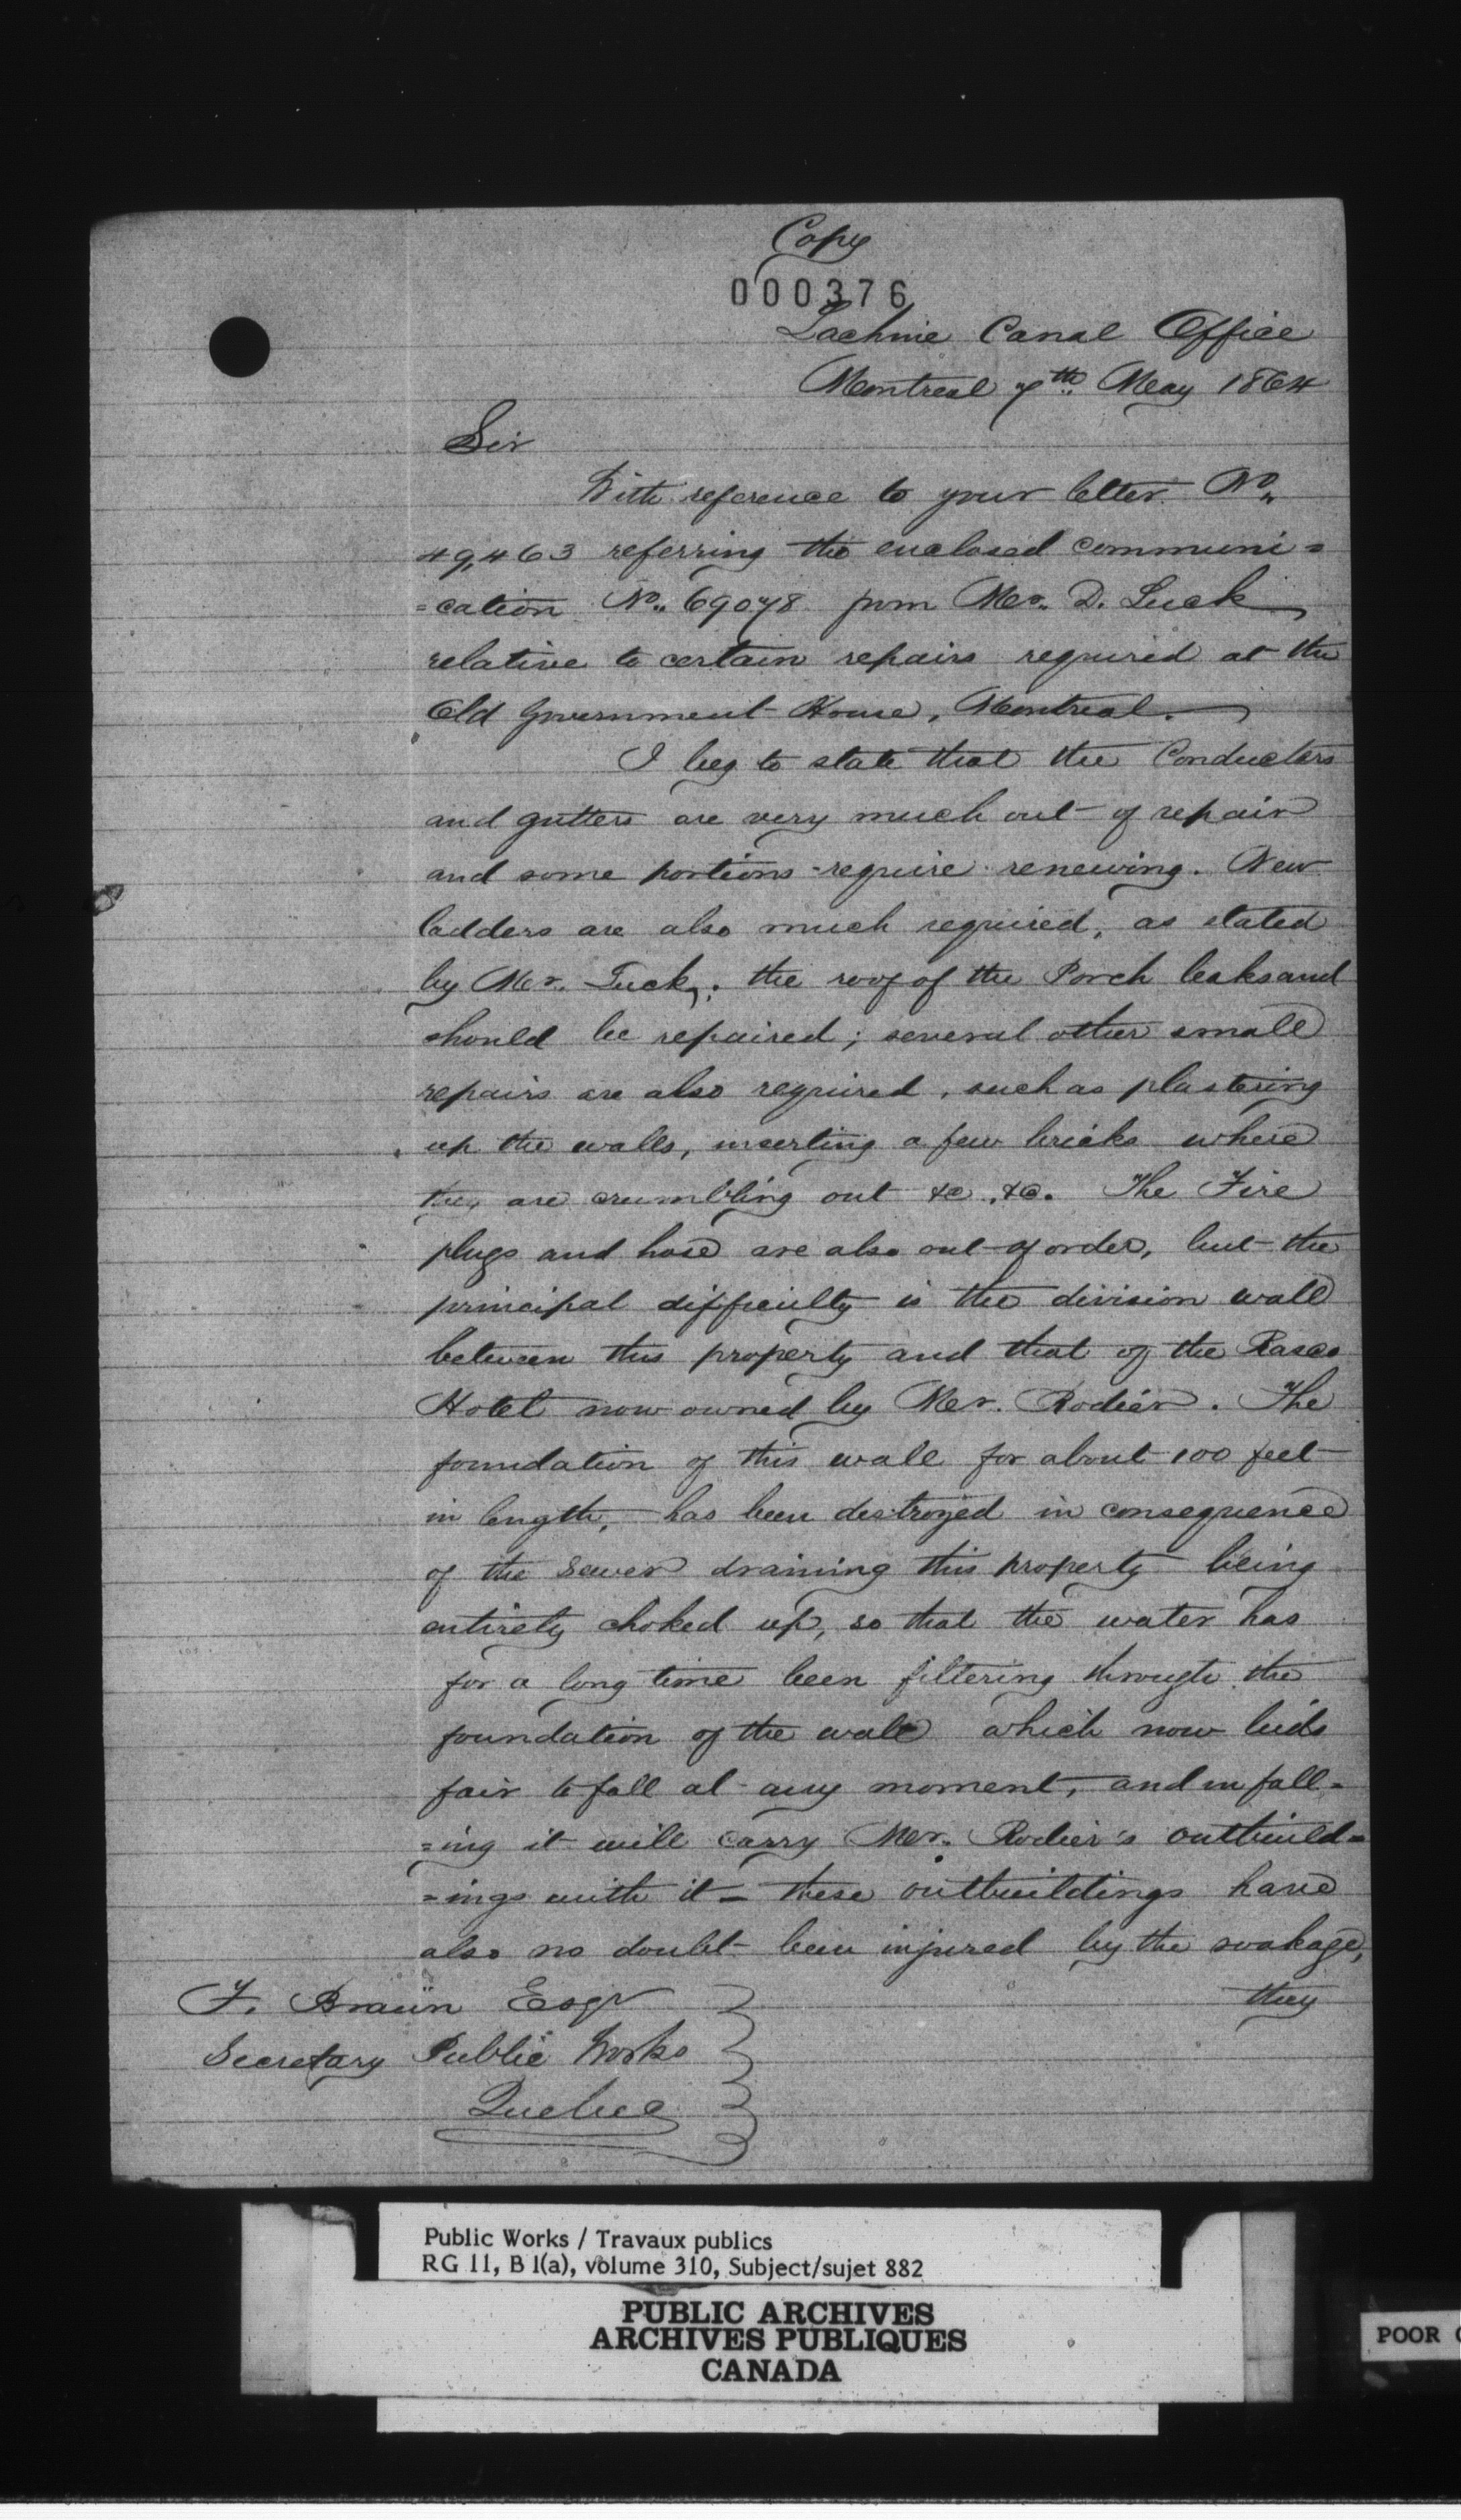 Copy
000376
Lachine Canal Office
Montreal 7th May 1864
Sir
With reference to your letter No.
49,463 referring the enclosed communi=
=cation No. 69078 from Mr. D. Luck
relative to certain repairs required at the
Old Government House, Montreal.
I beg to state that the Conductors
and gutters are very much out of repair
and some portions require renewing. New
ladders are also much required, as stated
by Mr. Luck; the roof of the Porch leaks and
should be repaired; several other small
repairs are also required, such as plastering
up the walls, inserting a few bricks where
they are crumbling out &c, &c. The Fire
plugs and hose are also out of order, but the
principal difficulty is the division wall
between this property and that of the Rasco
Hotel now owned by Mr. Rodier. The
foundation of this wall for about 100 feet
in length, has been destroyed in consequence
of the Sewer draining this property being
entirely choked up, so that the water has
for a long time been filtering through the
foundation of the wall which now bids
fair to fall at any moment, and in fall=
=ing it will carry Mr. Rodier's outbuild=
=ings with it - these outbuildings have
also no doubt been injured by the soakage,
they
F. Braün Esqr
Secretary Public Works
Quebec
Public Works / Travaux publics
RG 11, B 1(a), volume 310, Subject/sujet 882
PUBLIC ARCHIVES
ARCHIVES PUBLIQUES
CANADA
POOR